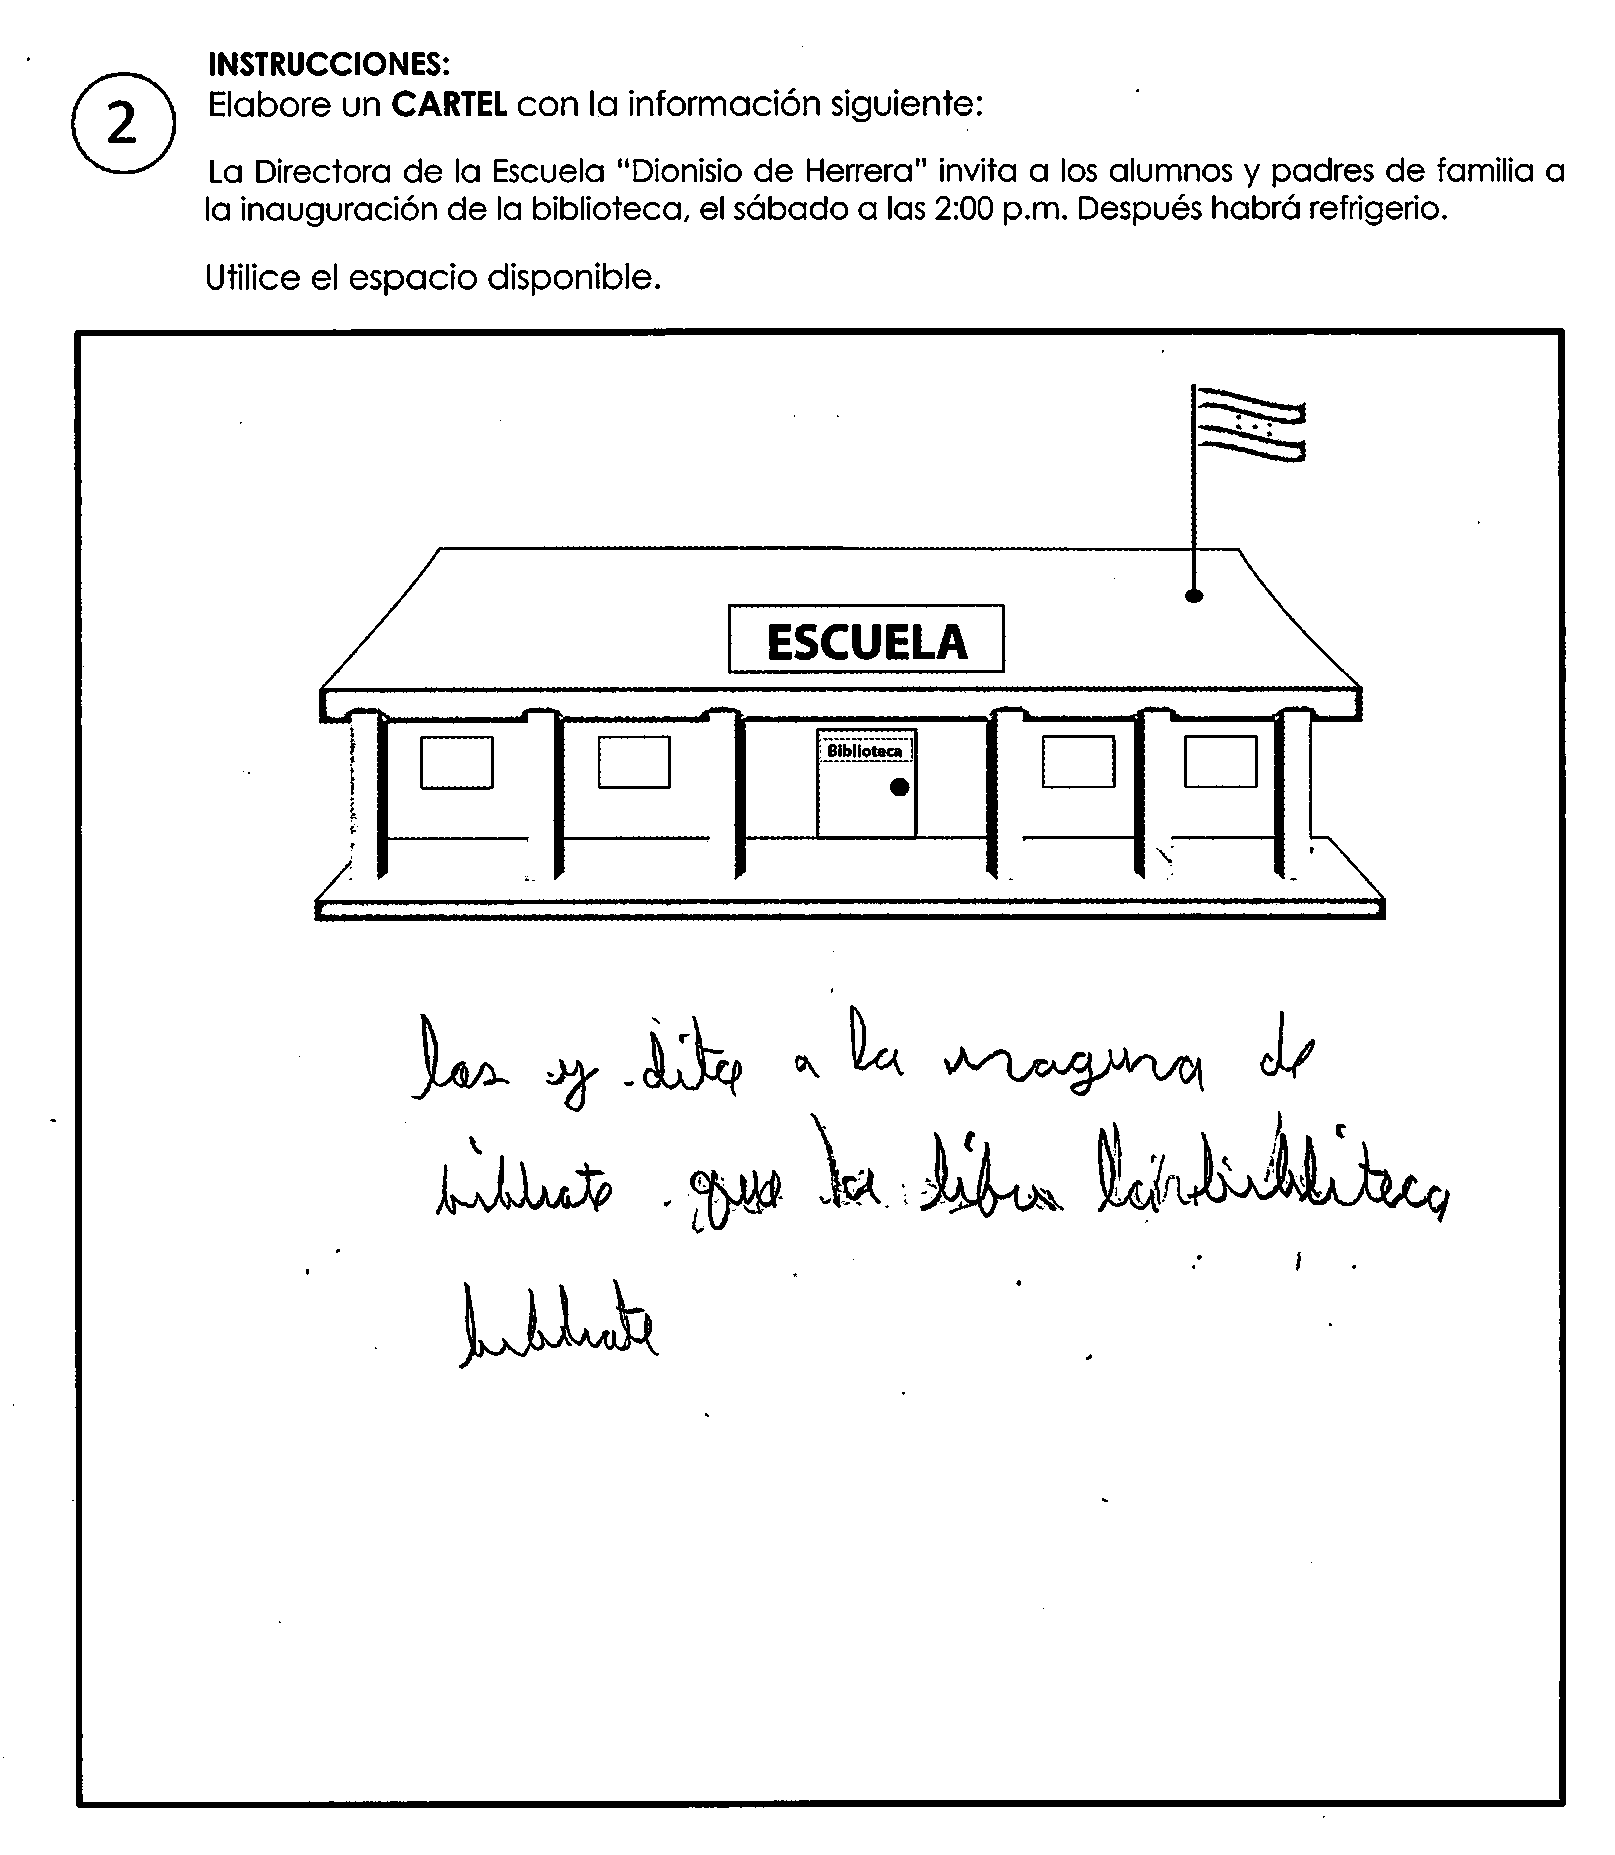 INSTRUCCIONES:
2
Elabore un CARTEL con la información siguiente:
La Directora de la Escuela "Dionisio de Herrera" invita a los alumnos y padres de familia a
la inauguración de la biblioteca, el sábado a las 2:00 p.m. Después habrá refrigerio.
Utilice el espacio disponible.
ESCUELA
Biblioteca
las y dita a la maguna de
bibliate que la
bibliate